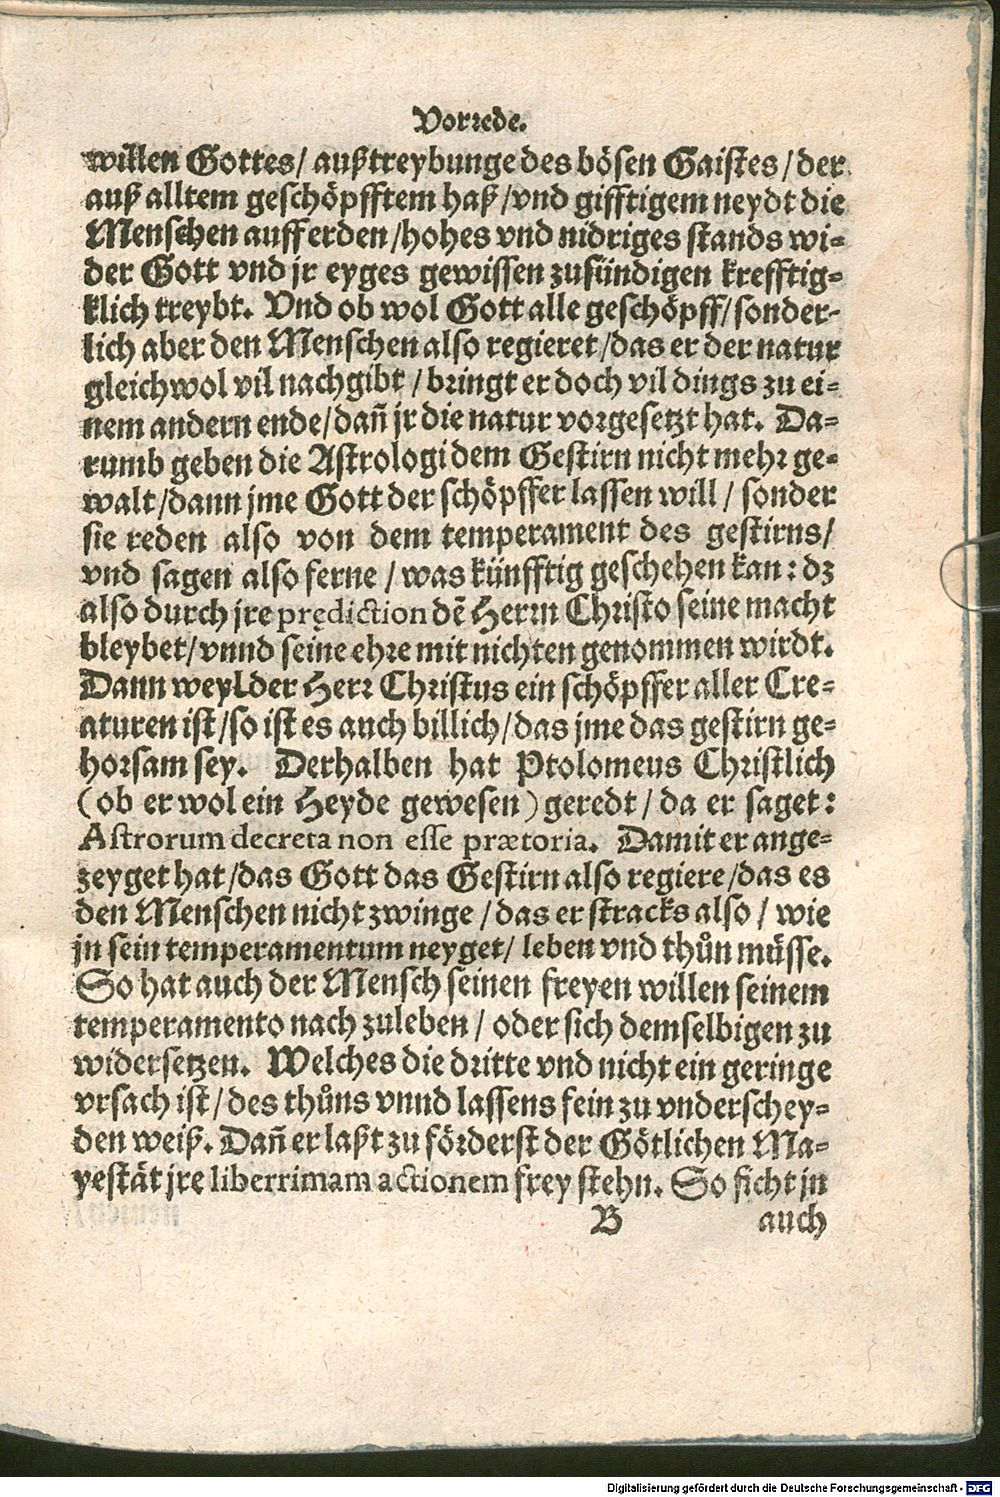 Vorrede.
willen Gottes/ außtreybunge des bösen Gaistes/ der
auß alltem geschöpfftem haß/vnd gifftigem neydt die
Menschen auff erden/hohes vnd nidriges stands wi⸗
der Gott vnd jr eyges gewissen zusündigen krefftig⸗
klich treybt. Vnd ob wol Gott alle geschöpff/sonder⸗
lich aber den Menschen also regieret/das er der natur
gleichwol vil nachgibt/ bringt er doch vil dings zu ei⸗
nem andern ende/dañ jr die natur vorgesetzt hat. Da⸗
rumb geben die Astrologi dem Gestirn nicht mehr ge⸗
walt/dann jme Gott der schöpffer lassen will/ sonder
sie reden also von dem temperament des gestirns/
vnd sagen also ferne/ was künfftig geschehen kan: dz
also durch jre prędiction dẽ Herrn Christo seine macht
bleybet/vnnd seine ehre mit nichten genommen wirdt.
Dann weyl der Herr Christus ein schöpffer aller Cre⸗
aturen ist/so ist es auch billich/das jme das gestirn ge⸗
horsam sey. Derhalben hat Ptolomeus Christlich
(ob er wol ein Heyde gewesen) geredt/ da er saget:
Astrorum decreta non esse prætoria. Damit er ange⸗
zeyget hat/das Gott das Gestirn also regiere/das es
den Menschen nicht zwinge/das er stracks also/ wie
jn sein temperamentum neyget/ leben vnd thůn müsse.
So hat auch der Mensch seinen freyen willen seinem
temperamento nach zuleben/ oder sich demselbigen zu
widersetzen. Welches die dritte vnd nicht ein geringe
vrsach ist/des thůns vnnd lassens fein zu vnderschey⸗
den weiß. Dañ er laßt zu förderst der Götlichen Ma⸗
yestät jre liberrimam actionem frey stehn. So ficht jn
B auch
Digitalisierung gefördert durch die Deutsche Forschungsgemeinschaft - DFG